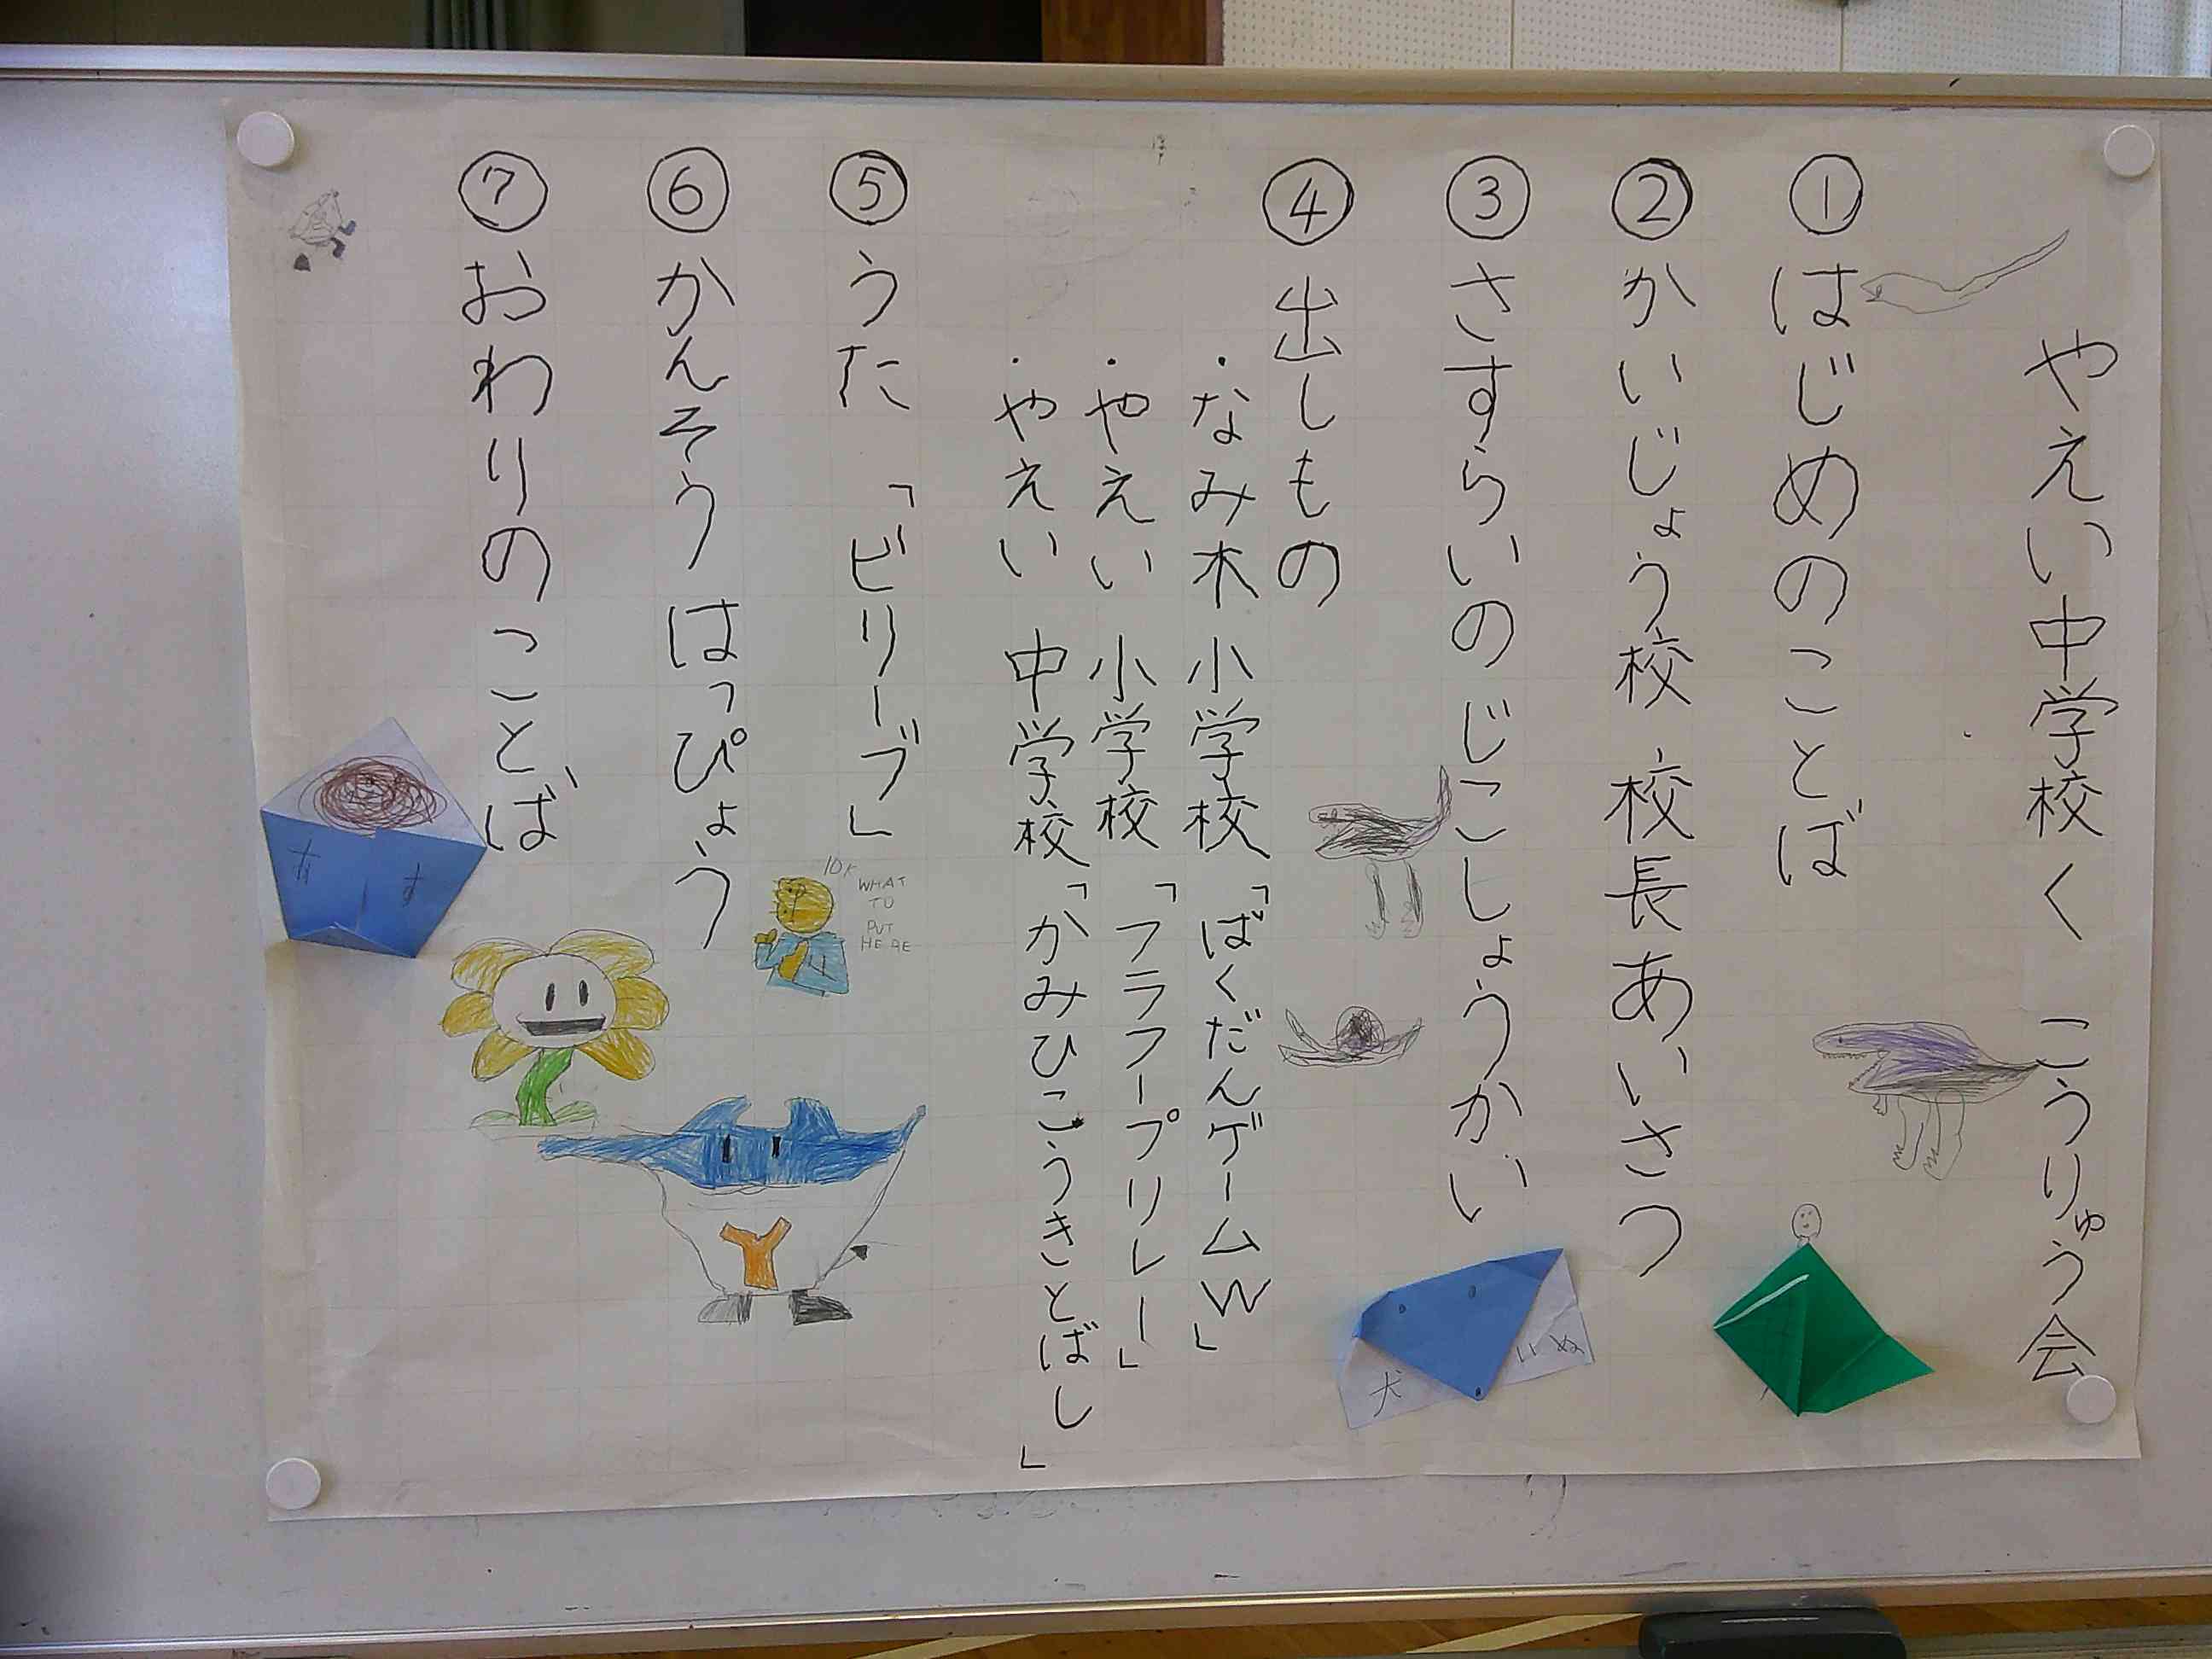 やえい中学校く こうりゅう会
①はじめのことば
②かいじょう校 校長あいさつ
③さすらいのじこしょうかい
④出しもの
・なみ木小学校「ばくだんゲームW」
・やえい小学校「フラフープリレー」
・やえい中学校「かみひこうきとばし」
⑤うた「ビリーブ」
⑥かんそうはっぴょう
⑦おわりのことば
IDK
WHAT
TO
PUT
HERE
いぬ
犬